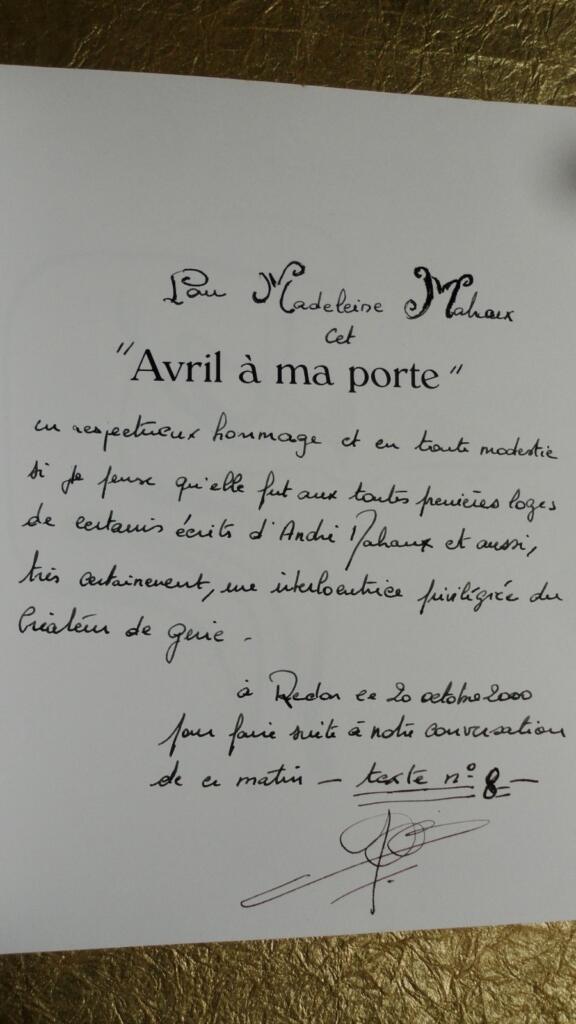 Pour Madeleine Mahaux
Cet
"Avril à ma porte"
en respectueux hommage et en toute modestie
si je pense qu'elle fut aux toutes premières loges
de certains écrits d'André Mahaux et aussi,
très certainement, une interlocutrice privilégiée du
Créateur de Génie -
à Redon ce 20 octobre 2000
pour faire suite à notre conversation
de ce matin - texte n° 8 -